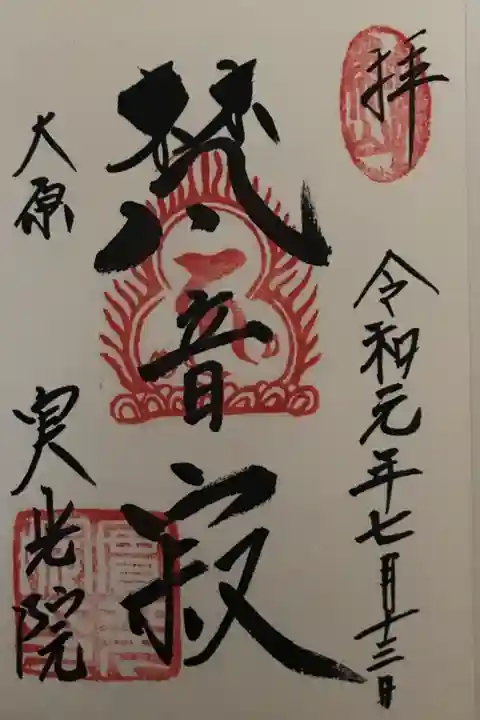 拝
令和元年七月十三日
梵音寂
大原
実光院